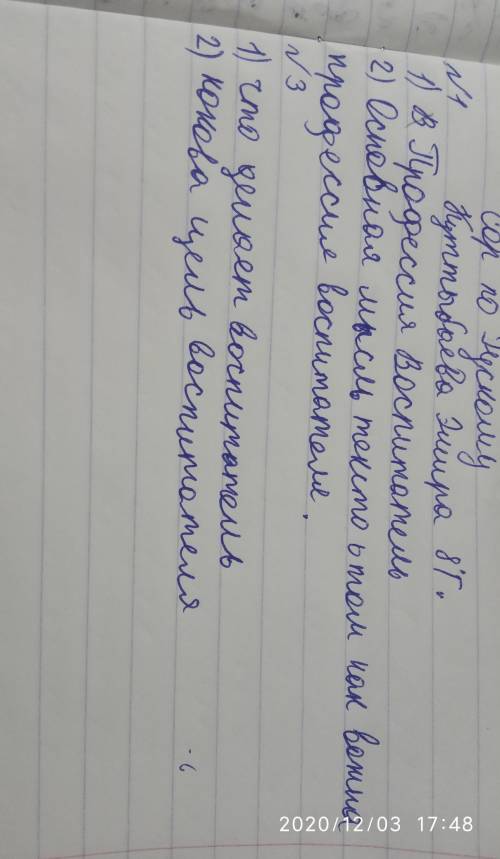 Сор по Рускому
Куттыбаева Эмира 8"Г".
№1
1) В Профессия Воспитатель
2) Основная мысль текста о том как важна
профессия воспитателя.
№3
1) что делает воспитатель
2) какова цель воспитателя
2020/12/03 17:48